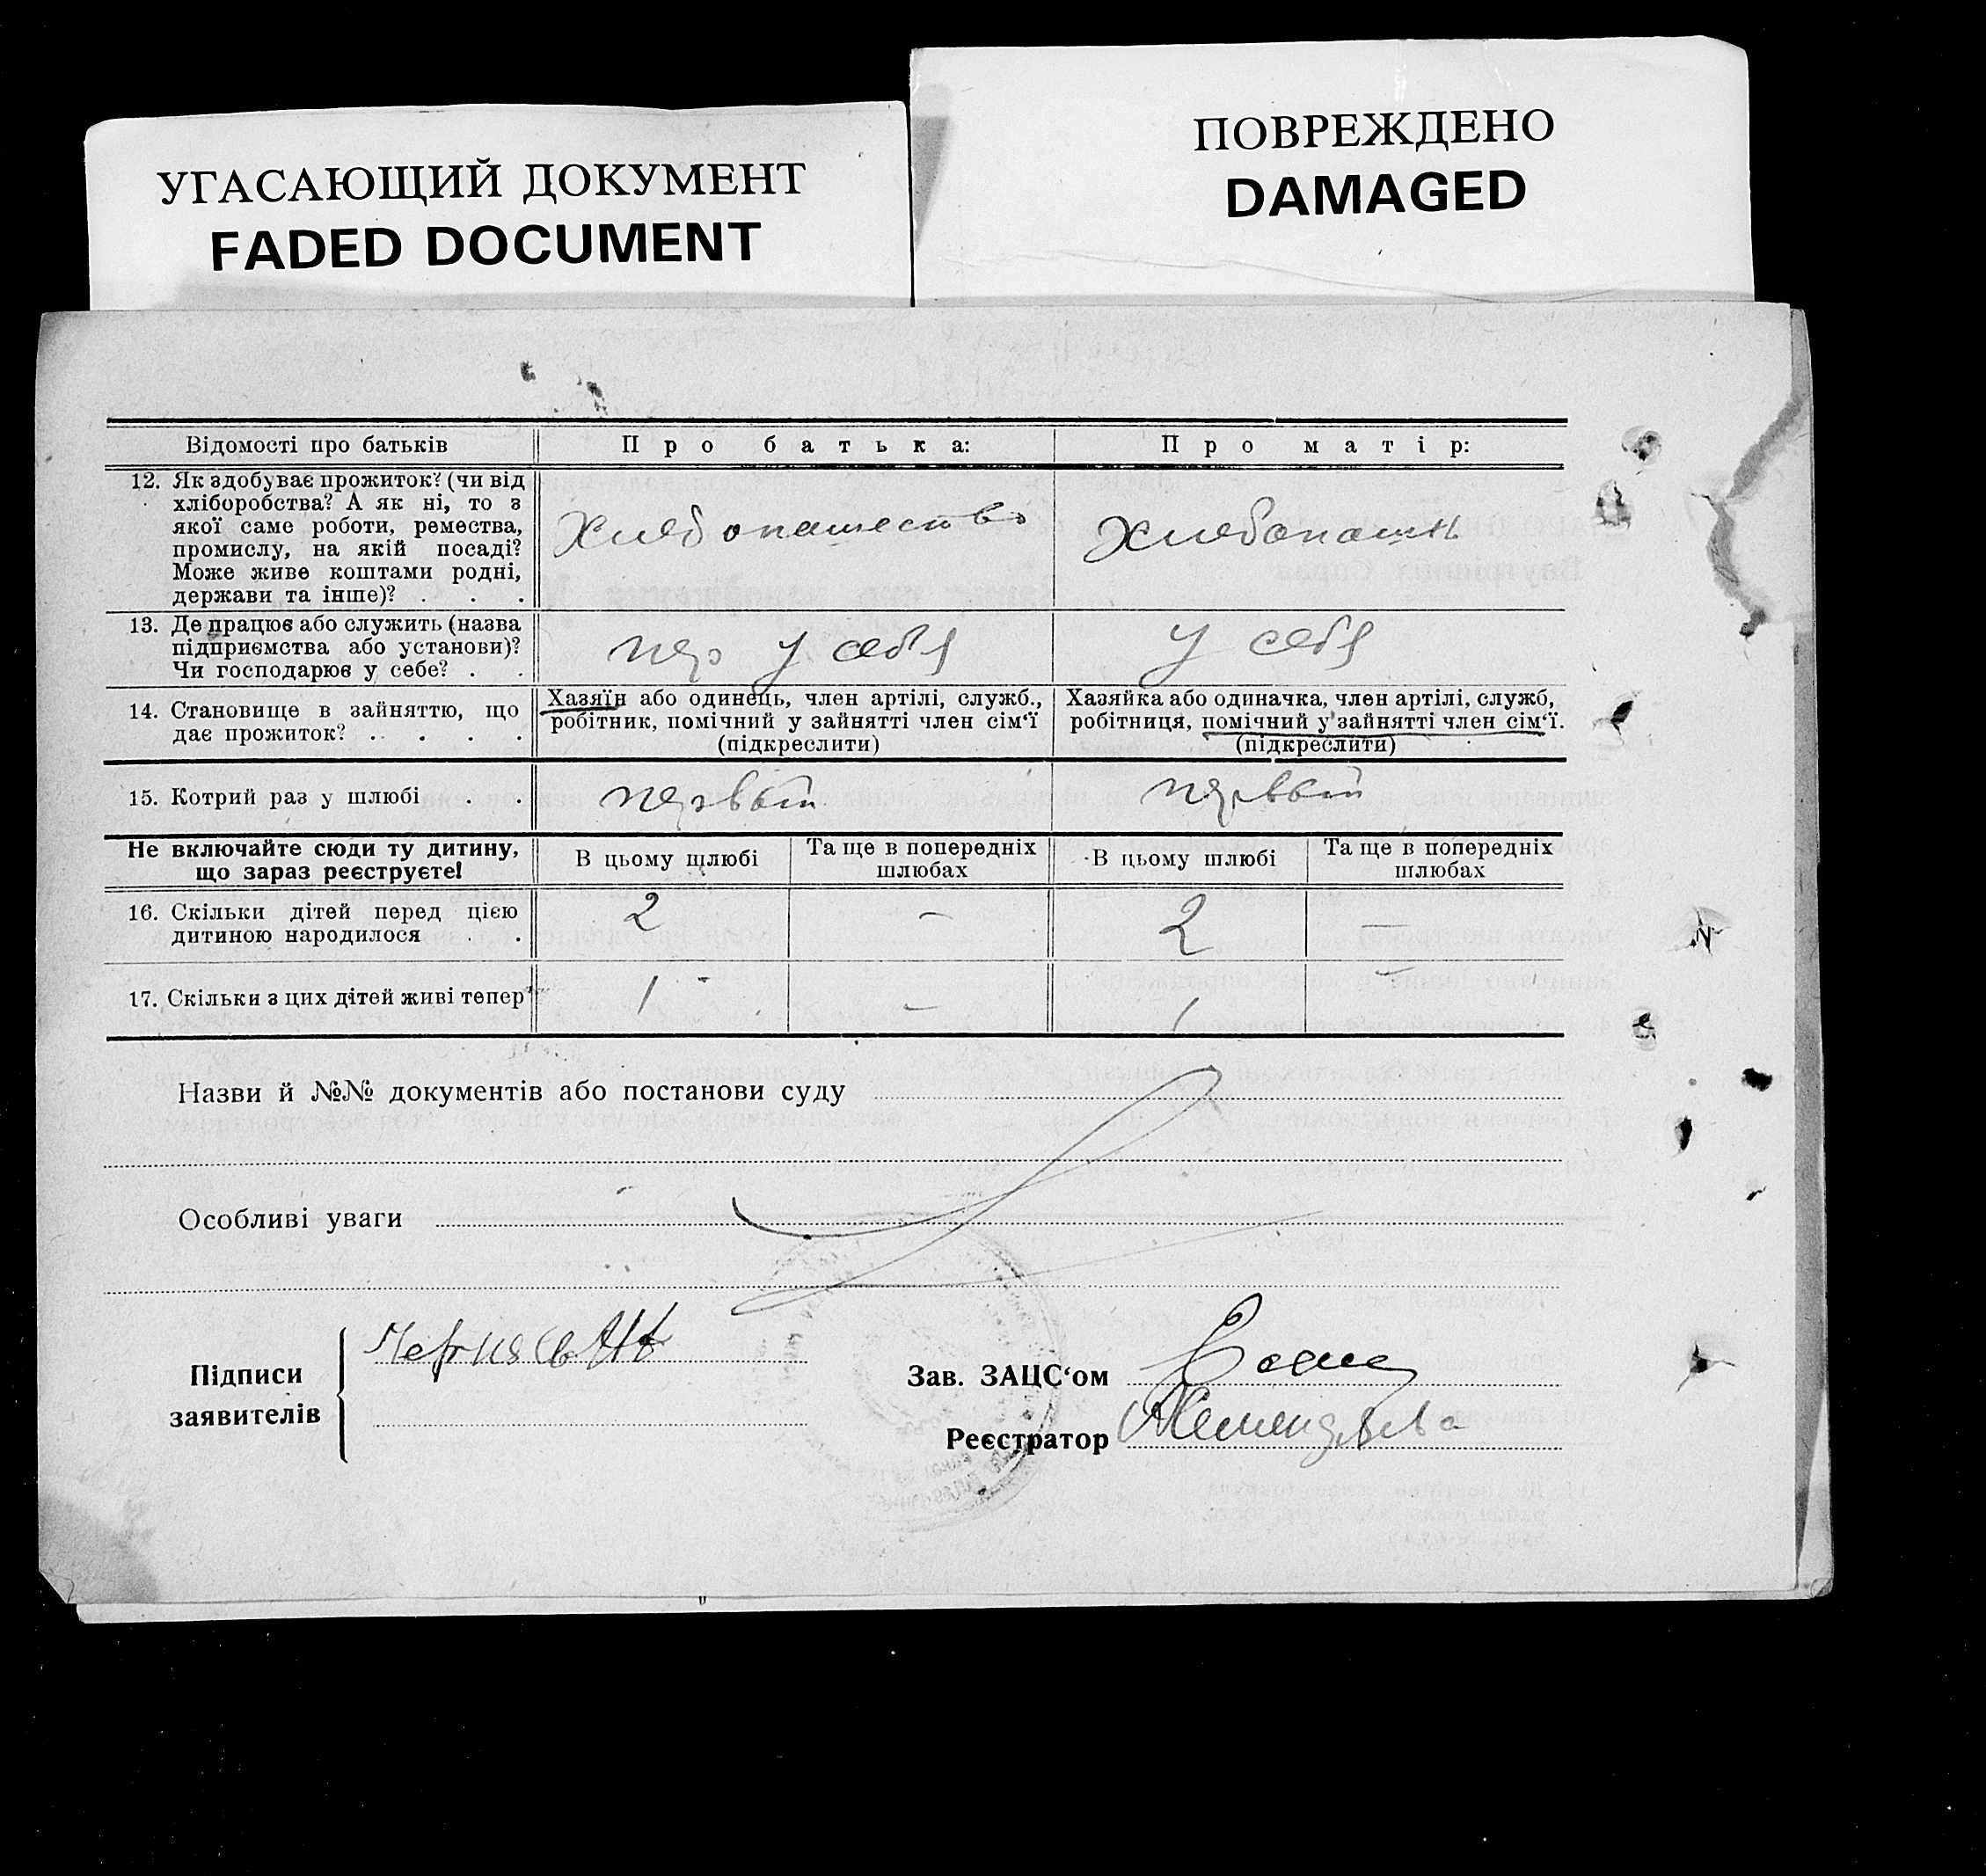 УГАСАЮЩИЙ ДОКУМЕНТ
FADED DOCUMENT
ПОВРЕЖДЕНО
DAMAGED
Відомості про батьків
Про батька:
Про матір:
12. Як здобуває прожиток? (чи від
хліборобства? А як ні, то з
якої саме роботи, ремества,
промислу, на якій посаді?
Може живе коштами родні,
держави та інше)? . . .
Хлебопашество
Хлебопашн
13. Де працює або служить (назва
підприємства або установи)?
Чи господарює у себе? . .
у себя
у себя
14. Становище в зайняттю, що
дає прожиток? . . . .
Хазяїн або одинець, член артілі, служб.,
робітник, помічний у зайнятті член сім‘ї
(підкреслити)
Хазяйка або одиначка, член артілі, служб,
робітниця, помічний у зайнятті член сім‘ї.
(підкреслити)
15. Котрий раз у шлюбі . .
первый
первый
Не включайте сюди ту дитину,
що зараз реєструєте!
В цьому шлюбі
Та ще в попередніх
шлюбах
В цьому шлюбі
Та ще в попередніх
шлюбах
16. Скільки дітей перед цією
дитиною народилося . .
2
—
2
—
17. Скільки з цих дітей живі тепер
1
—
1
—
Назви й №№ документів або постанови суду
Особливі уваги
Підписи
заявителів
Зав. ЗАЦС‘ом
Реєстратор